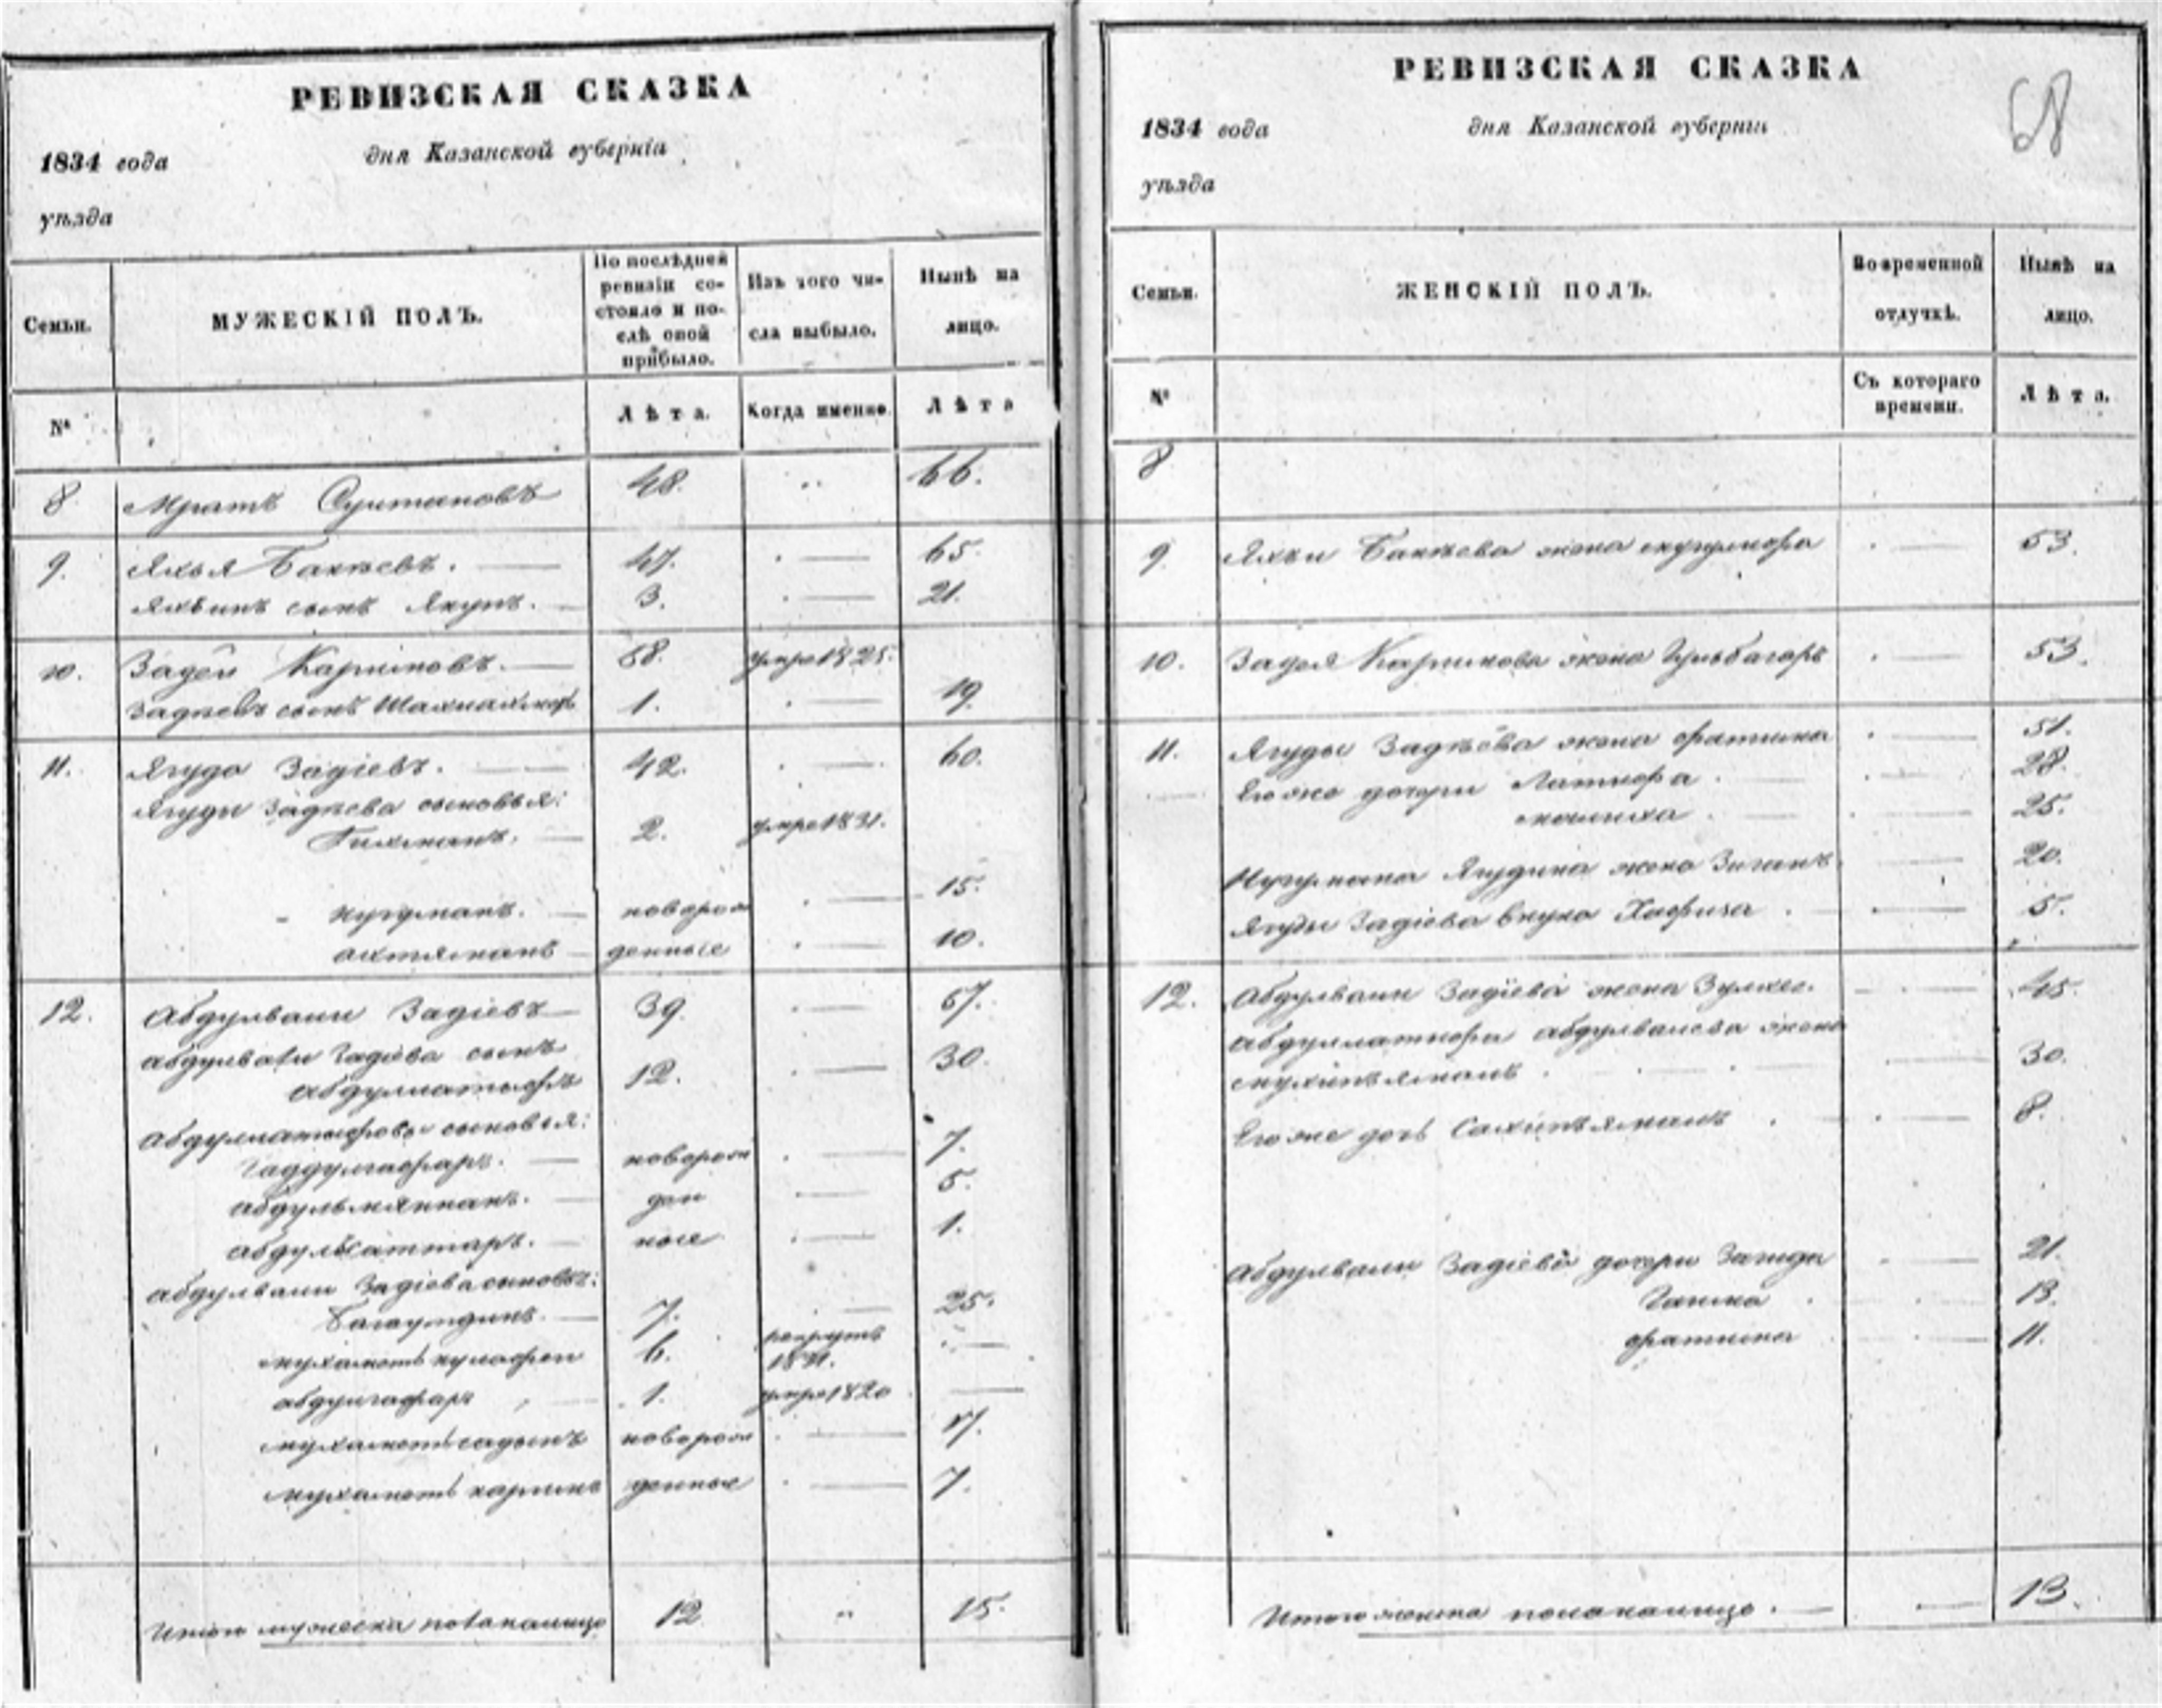 РЕВИЗСКАЯ СКАЗКА
1834 года
дня Казанской губернiи
уѣзда
Семьи.
МУЖЕСКIЙ ПОЛЪ.
По послѣдней
ревизiи со-
стояло и по-
слѣ оной
прибыло.
Изъ того чи-
сла выбыло.
Нынѣ на
лицо.
№
Лѣта.
Когда именно.
Лѣта
8 48. 66.
9. Яхья Бакѣевъ. 47. 65.
Яхьинъ сынъ Якупъ. 3. 21.
10. Задѣй Каримовъ. умре 1825.
Задѣевъ сынъ 1. 19.
11. Ягуда Задiевъ. 42. 60.
Ягуды Задѣева сыновья:
2. умре 1831.
нугуманъ. новорож 15.
ахтяманъ денные 10.
12. Абдулвали Задiевъ 39. 57.
абдулвали Задiева сынъ
абдуллатыфъ 12. 30.
Абдуллатыфовы сыновья:
новорож 7.
абдульмяннанъ. ден 5.
абдулсаттаръ. ные 1.
абдулвали Задiева сыновья:
Багаутдинъ. 7. 25.
6. рекрутъ
абдулгафаръ 1. умре 1820
мухаметсадыкъ новорож 17.
мухаметкаримъ денные 7.
Итого мужеска пола налицо 12 15.
РЕВИЗСКАЯ СКАЗКА
1834 года
дня Казанской губернiи
уѣзда
Семьи.
ЖЕНСКIЙ ПОЛЪ.
Во временной
отлучкѣ.
Нынѣ на
лицо.
№
Съ котораго
времени.
Лѣта.
8
9. Яхьи Бакѣева жена 53.
10. Задея Каримова жена 53.
11. Ягуды Задѣева жена фатима 51.
Его же дочери Латифа 28.
25.
Нугумана Ягудина жена 20.
Ягуды Задiева внука Хафиза 5.
12. Абдулвали Задiева жена 45.
абдуллатифа абдулвалиева жена
30.
Его же дочь 8.
Абдулвали Задiева дочери 21.
13.
фатима 11.
Итого женска пола налицо. 13.